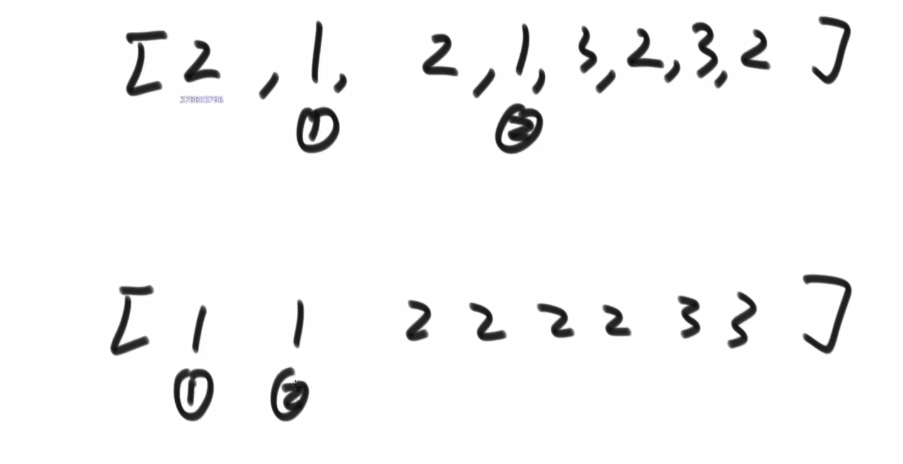 [2, 1, 2, 1, 3, 2, 3, 2]
① ②
[1 1 2 2 2 2 3 3]
① ②